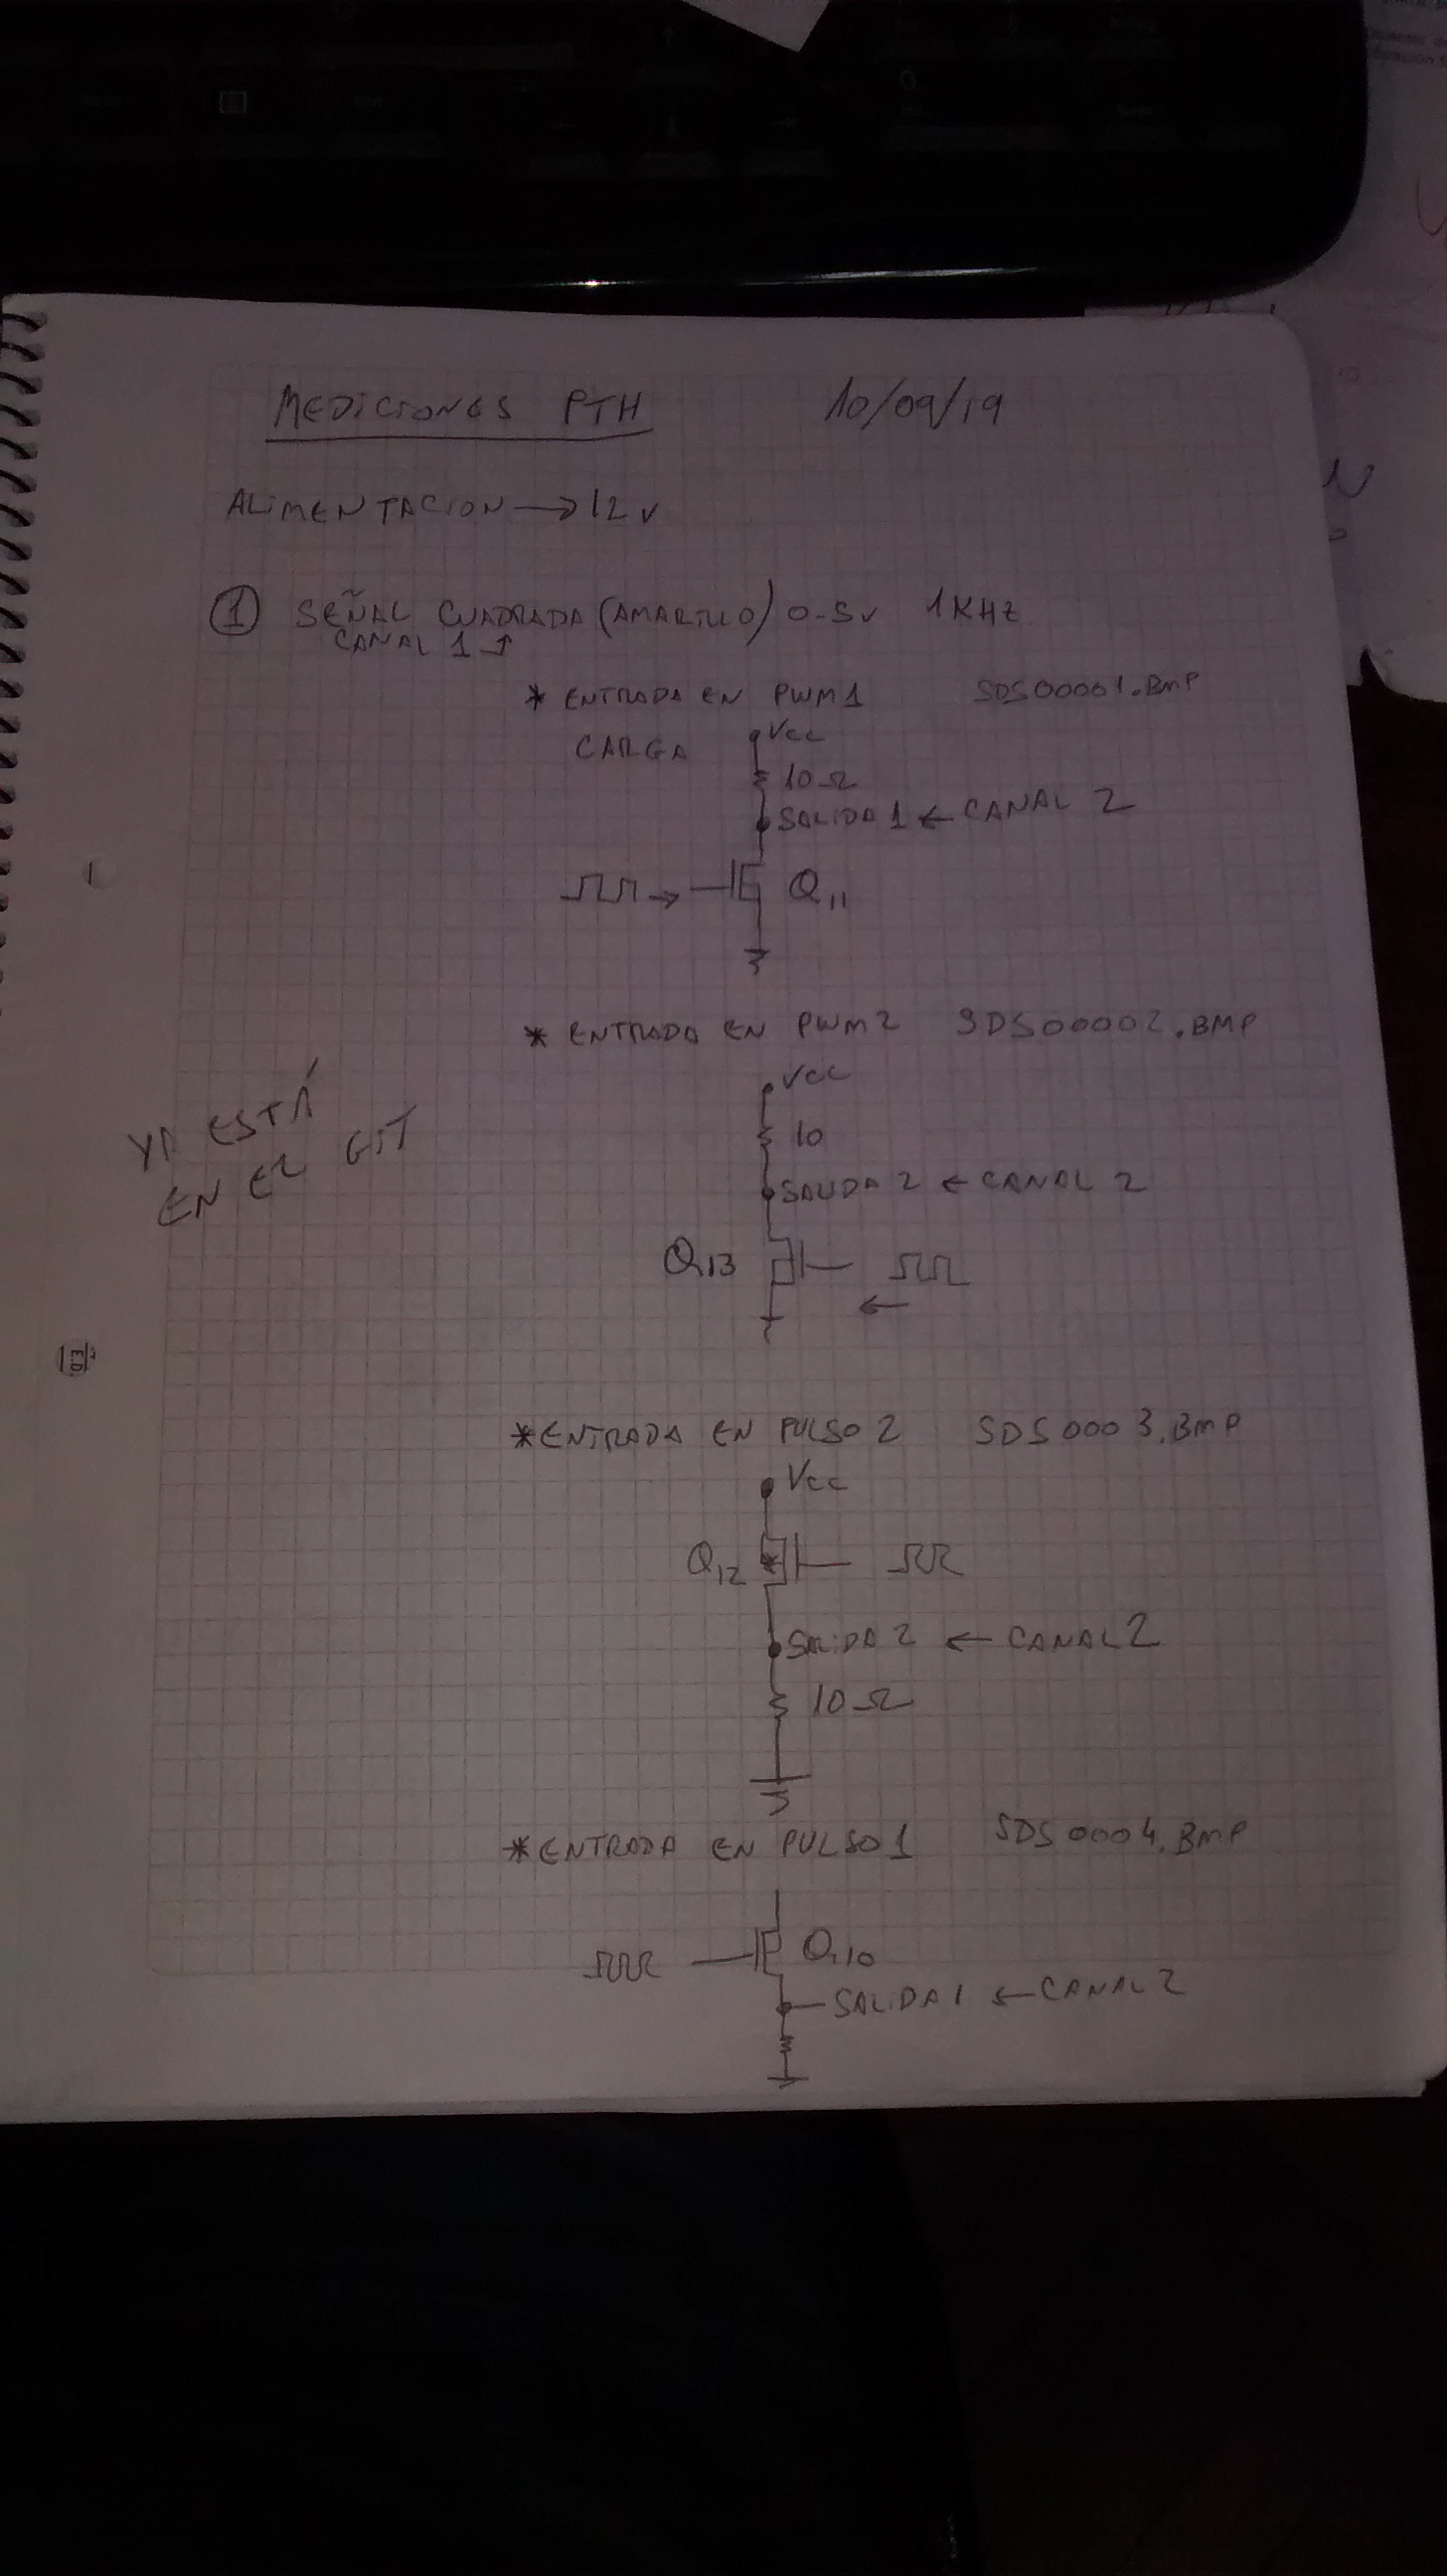 MEDICIONES PTH 10/09/19
ALIMENTACION → 12V
① SEÑAL CUADRADA (AMARILLO) 0-5V 1KHZ
CANAL 1
* ENTRADA EN PWM1 SDS00001.BMP
CARGA
VCC
10Ω
SALIDA 1 ← CANAL 2
Q11
* ENTRADA EN PWM2 SDS00002.BMP
VCC
10
SALIDA 2 ← CANAL 2
Q13
YA ESTÁ
EN EL GIT
* ENTRADA EN PULSO 2 SDS0003.BMP
VCC
Q12
SALIDA 2 ← CANAL 2
10Ω
* ENTRADA EN PULSO 1 SDS0004.BMP
Q10
SALIDA 1 ← CANAL 2